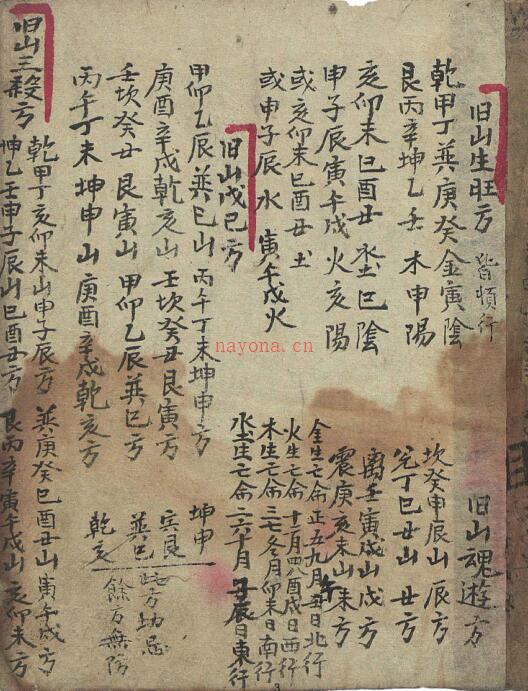 旧山生旺方
皆順行
乾甲丁巽庚癸金寅陰
艮丙辛坤乙壬木申陽
亥卯未巳酉丑水土巳陰
申子辰寅午戌火亥陽
或亥卯未巳酉丑土
或申子辰水寅午戌火
旧山戊巳方
甲卯乙辰巽巳山丙午丁未坤申方
庚酉辛戌乾亥山壬坎癸丑艮寅方
壬坎癸丑艮寅山甲卯乙辰巽巳方
丙午丁未坤申山庚酉辛戌乾亥方
旧山三殺方
乾甲丁亥卯未山申子辰方巽庚癸巳酉丑山寅午戌方
坤乙壬申子辰山巳酉丑方艮丙辛寅午戌山亥卯未方
旧山魂遊方
坎癸申辰山辰方
兌丁巳丑山丑方
离壬寅戌山戌方
震庚亥未山未方
金生亡命正五九月丑日北行
火生亡命十二月四八酉戌日西行
木生亡命三七冬月卯未日南行
水土生亡命二六十月子辰日東行
坤申
艮
巽巳
乾亥
此方切忌
餘方無防
nayona.cn
3